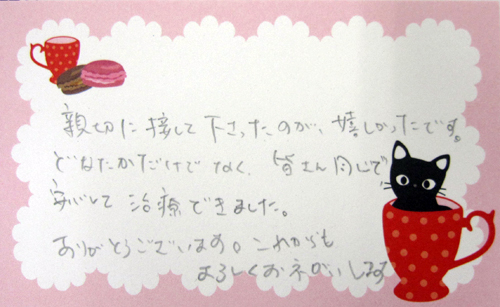 親切に接して下さったのが、嬉しかったです。
どなたかだけでなく、皆さん同じで
安心して治療できました。
ありがとうございます。これからも
よろしくお願いします